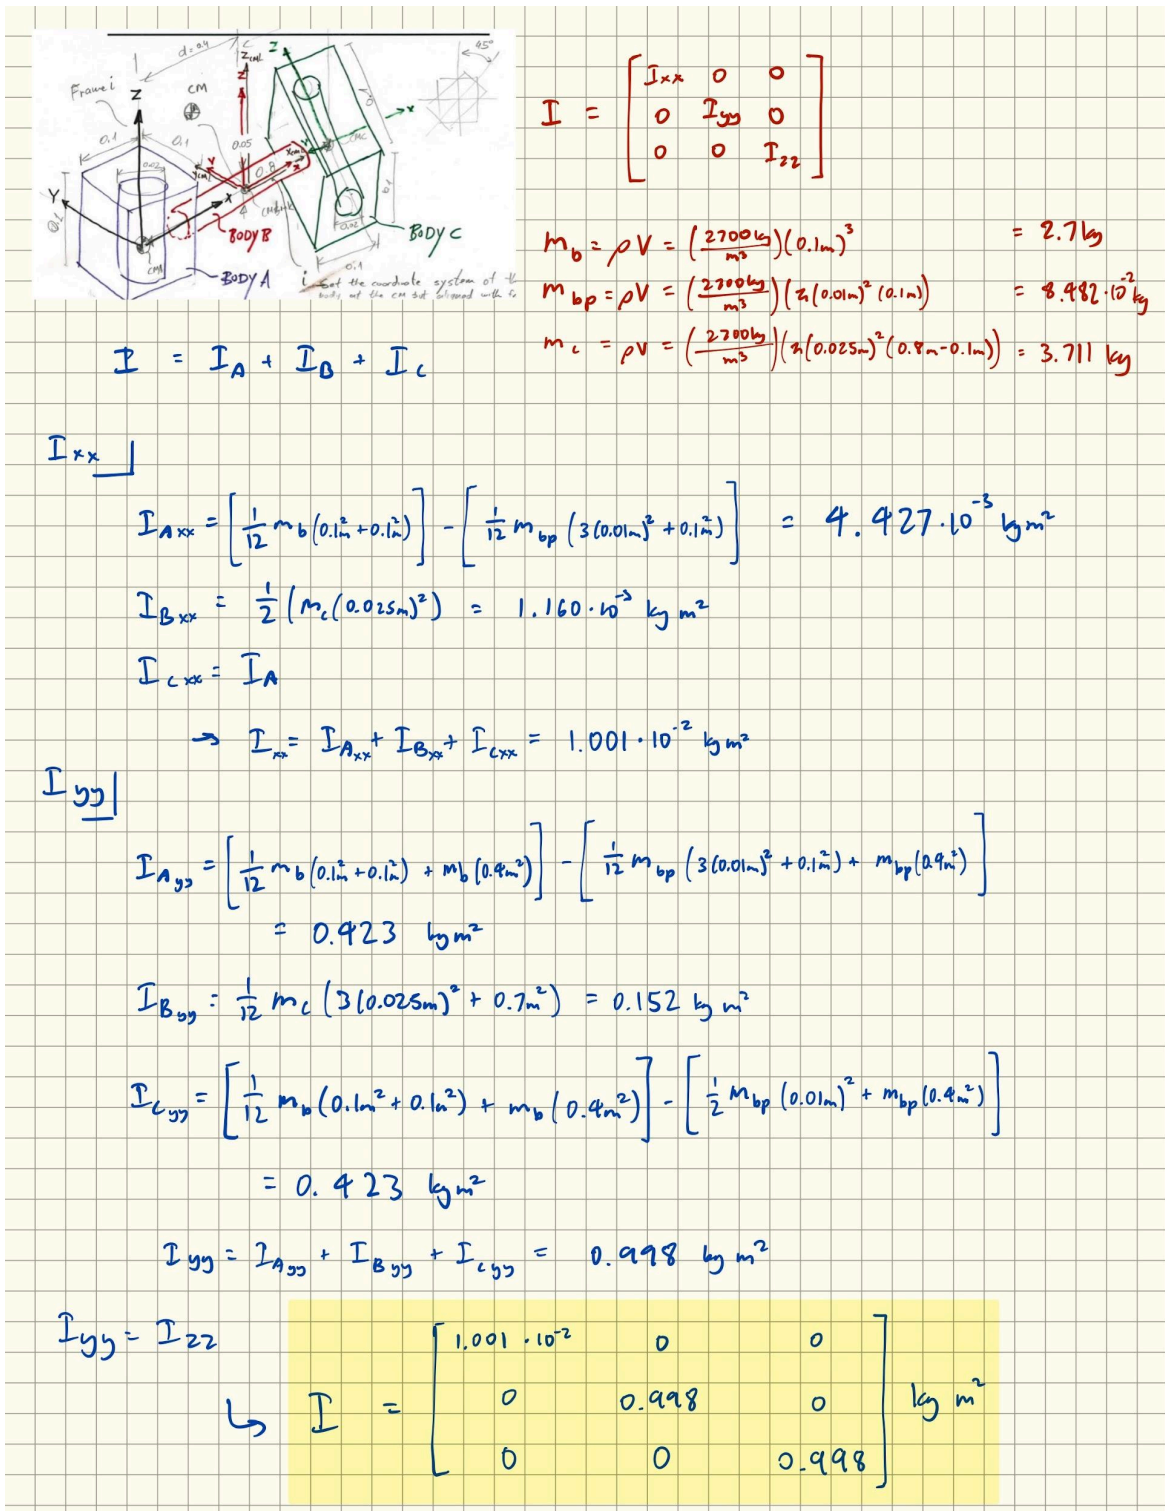 d=0.4
Z_CML
Z
45°
Frame i
Z
CM
0.1
0.1
0.05
0.02
0.8
Y
X
x
CMC
CM
0.1
0.1
BODY B
BODY C
BODY A
0.1
i set the coordinate system of th
body at the CM but alinned with fr
I = [ Ixx 0 0
0 Iyy 0
0 0 Izz ]
m_b = ρV = (2700kg/m³)(0.1m)³ = 2.7kg
m_bp = ρV = (2700kg/m³)(π(0.01m)²(0.1m)) = 8.482·10⁻²kg
m_c = ρV = (2700kg/m³)(π(0.025m)²(0.8m-0.1m)) = 3.711 kg
I = I_A + I_B + I_C
Ixx
I_Axx = [1/12 m_b(0.1m²+0.1m²)] - [1/12 m_bp (3(0.01m)²+0.1m²)] = 4.427·10⁻³ kgm²
I_Bxx = 1/2 (m_c(0.025m)²) = 1.160·10⁻³ kg m²
I_Cxx = I_A
→ I_xx = I_Axx + I_Bxx + I_Cxx = 1.001·10⁻² kgm²
Iyy
I_Ayy = [1/12 m_b(0.1m²+0.1m²) + m_b(0.4m²)] - [1/12 m_bp (3(0.01m)²+0.1m²) + m_bp(0.4m²)]
= 0.423 kgm²
I_Byy = 1/12 m_c (3(0.025m)² + 0.7m²) = 0.152 kg m²
I_Cyy = [1/12 m_b (0.1m²+0.1m²) + m_b (0.4m²)] - [1/2 m_bp (0.01m)² + m_bp(0.4m²)]
= 0.423 kgm²
Iyy = I_Ayy + I_Byy + I_Cyy = 0.998 kg m²
Iyy = Izz
↳ I = [ 1.001·10⁻² 0 0
0 0.998 0
0 0 0.998 ] kg m²